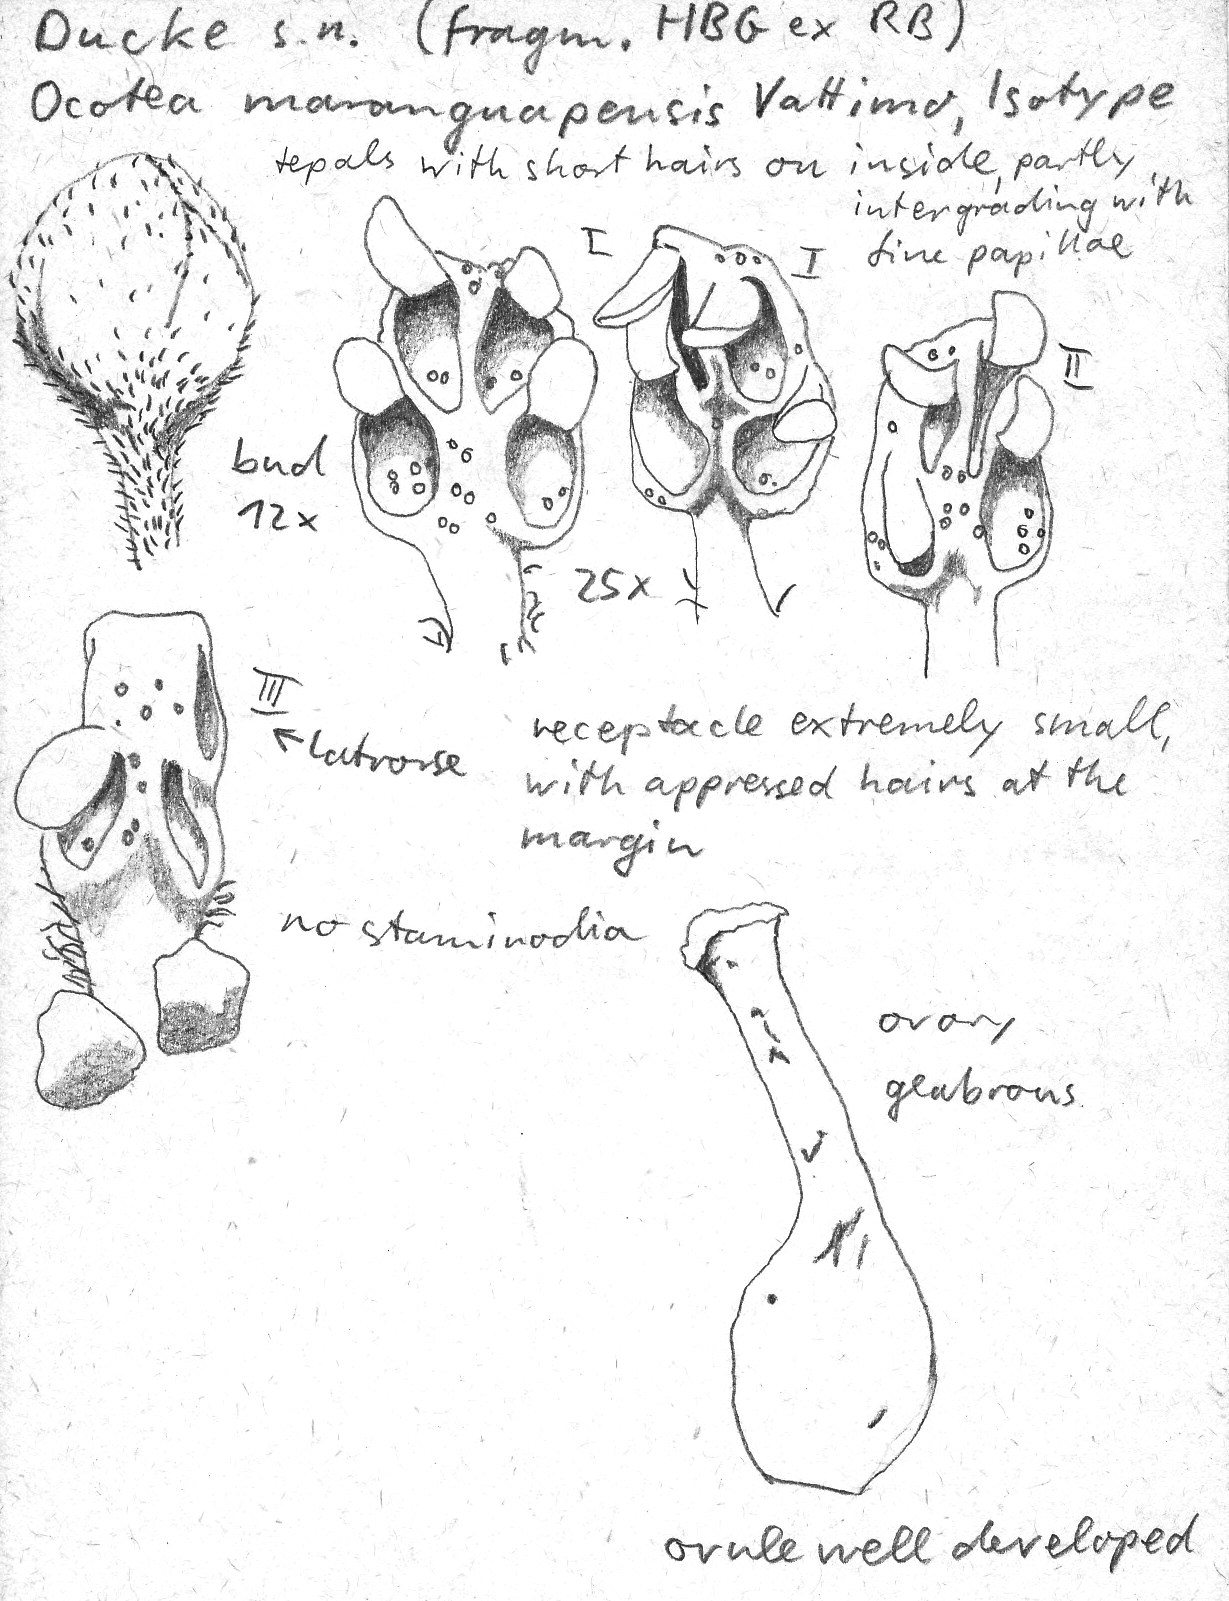 Ducke s.n. (fragm. HBG ex RB)
Ocotea maranguapensis Vattimo, Isotype
tepals with short hairs on inside, partly
intergrading with
fine papillae
I
I
II
bud
12x
25x
III
latrorse
receptacle extremely small,
with appressed hairs at the
margin
no staminodia
ovary
glabrous
ovule well developed